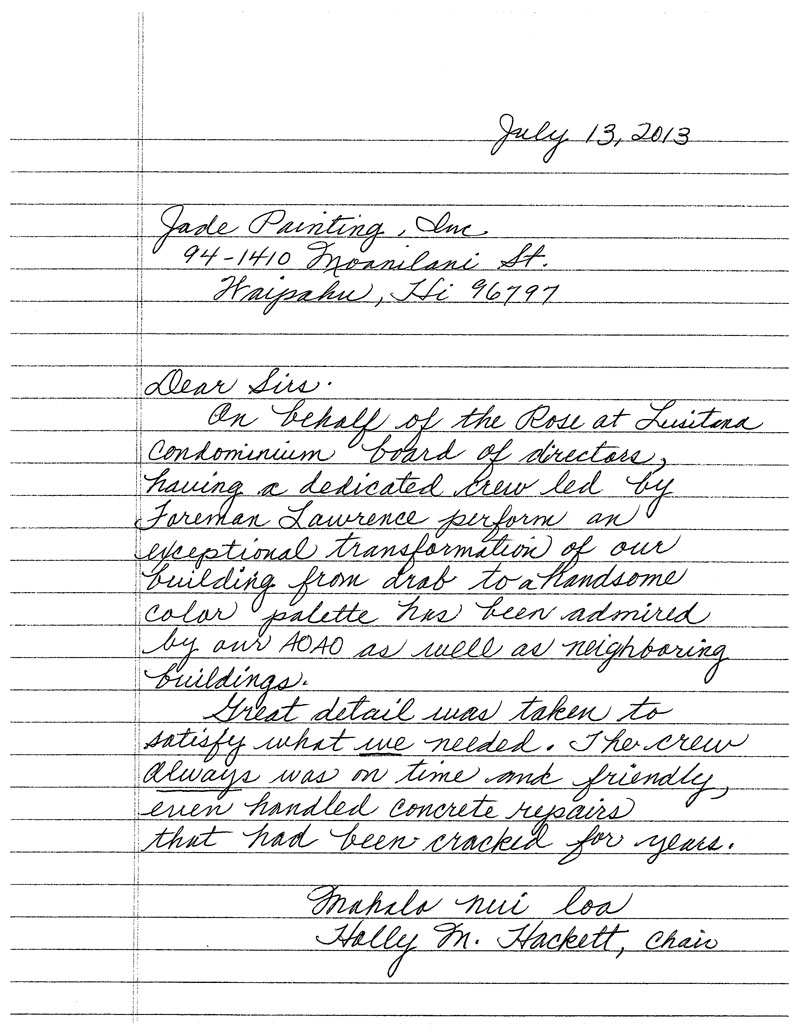 July 13, 2013
Jade Painting, Inc.
94-1410 Moanilani St.
Waipahu, Hi 96797
Dear Sirs.
On behalf of the Rose at Lusitana
condominium board of directors,
having a dedicated crew led by
Foreman Lawrence perform an
exceptional transformation of our
building from drab to a handsome
color palette has been admired
by our AOAO as well as neighboring
buildings.
Great detail was taken to
satisfy what we needed. The crew
always was on time and friendly,
even handled concrete repairs
that had been cracked for years.
Mahalo nui loa
Holly M. Hackett, Chair